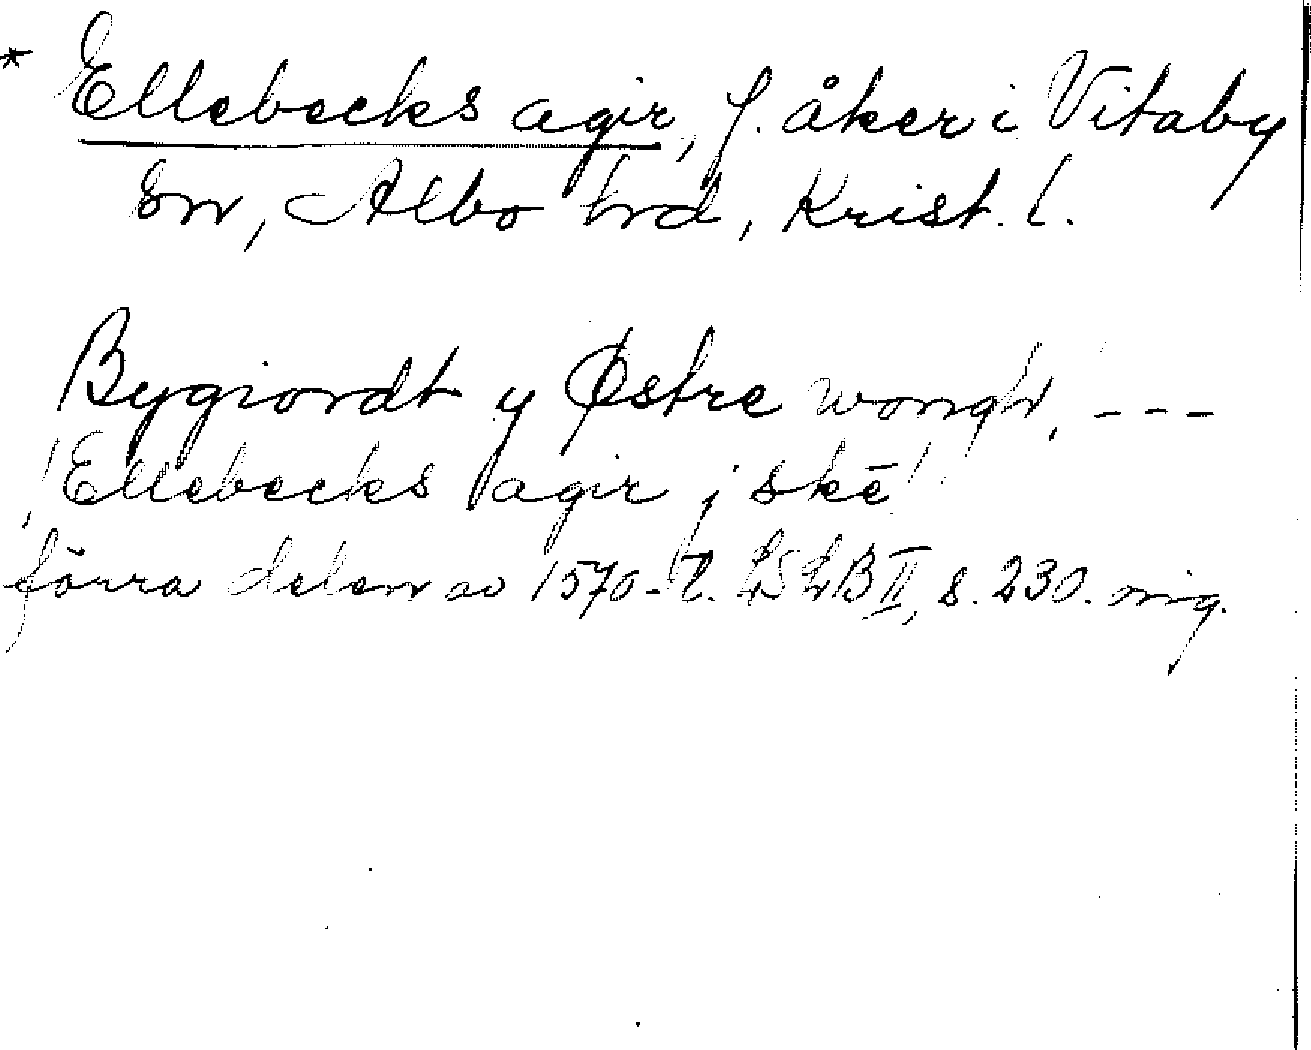 * Ellebecks agir, f. åker i Vitaby
sn, Albo hrd, Krist. l.
Bygiordt y Østre wongh, ---
"Ellebecks agir j skē"
förra delen av 1570-t. LSLB II, s. 230. orig.